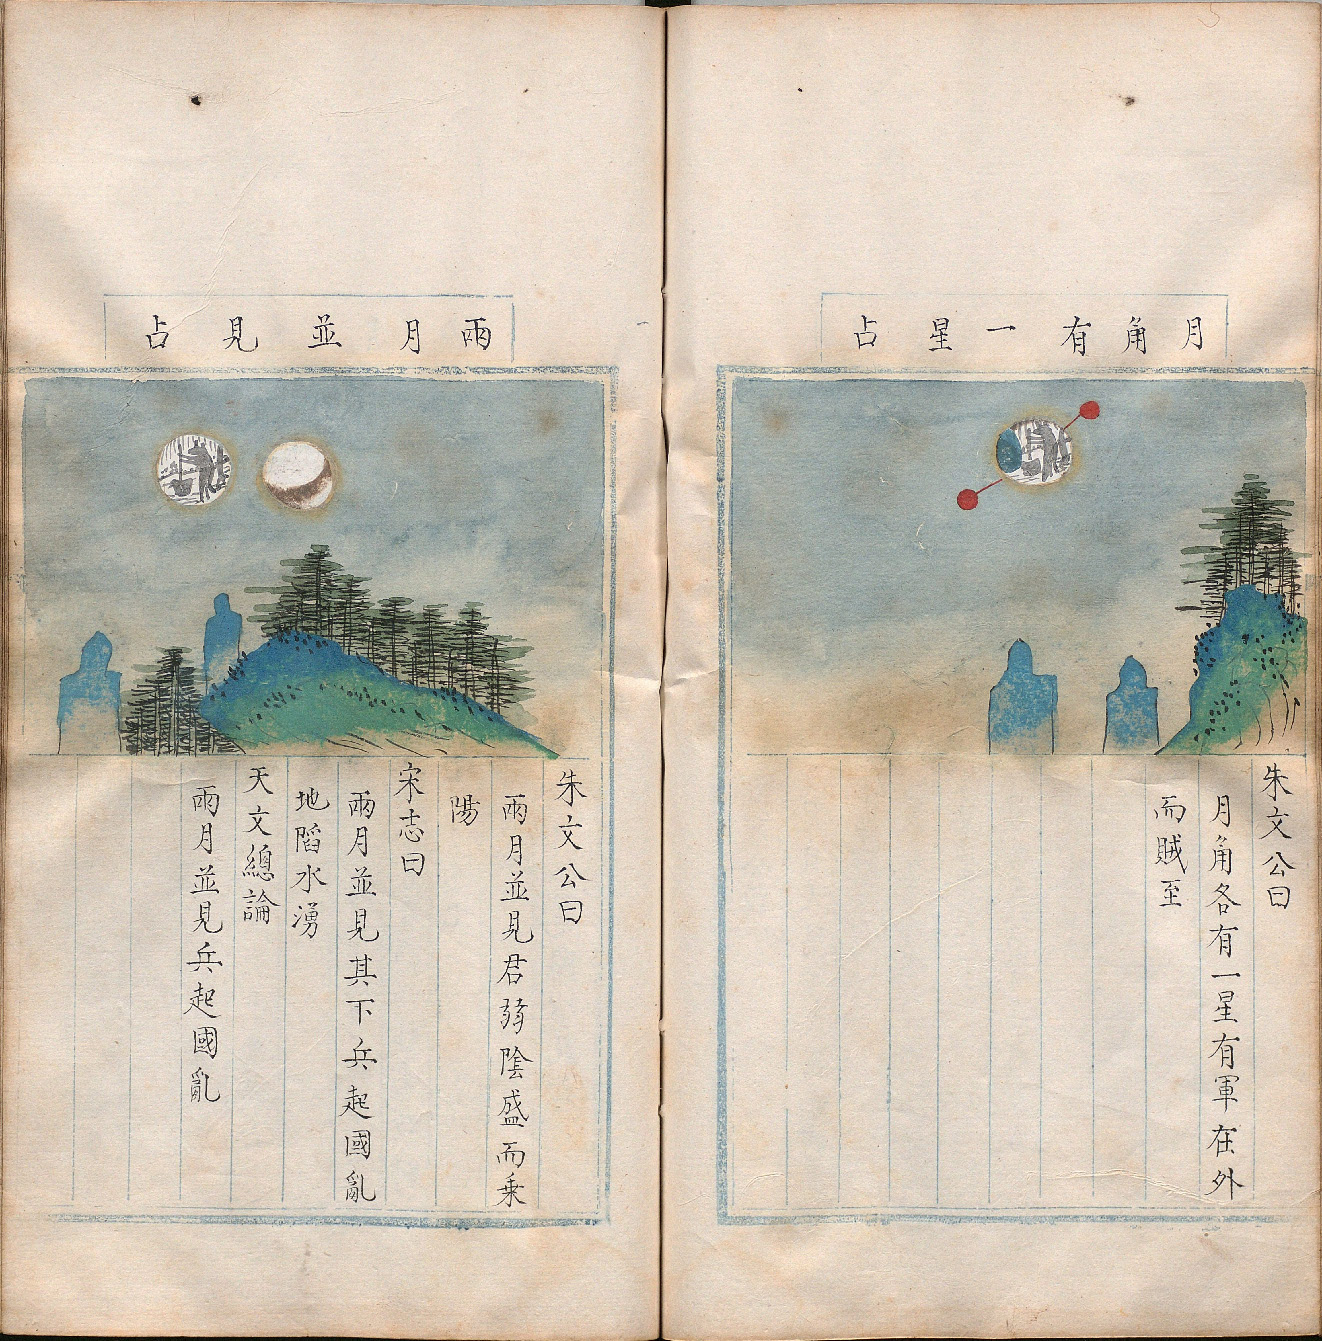 月角有一星占
朱文公曰
月角各有一星有軍在外
而賊至
兩月並見占
朱文公曰
兩月並見君弱陰盛而乗
陽
宋志曰
兩月並見其下兵起國亂
地陷水湧
天文總論
兩月並見兵起國亂